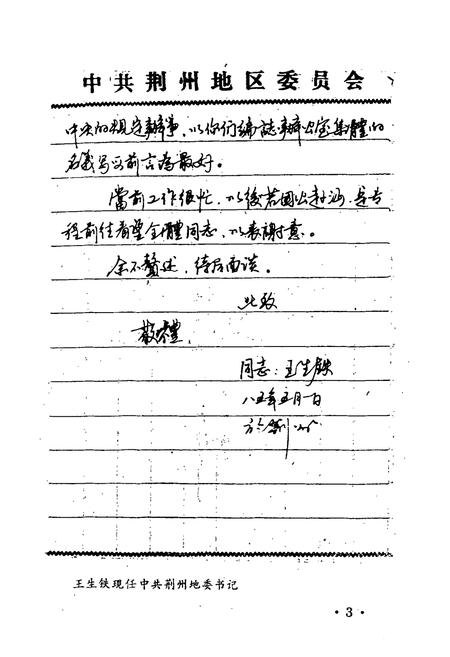 中共荆州地区委员会
中央的规定辦事，以你们编誌辦公室集體的
名義写以前言為最好。
當前工作很忙，以後若因公赴沔，是专
程前往看望全體同志，以表謝意。
余不赘述，待后面谈。
此致
敬禮
同志：王生铁
八五年五月一日
於荆州
王生铁现任中共荆州地委书记
·3·